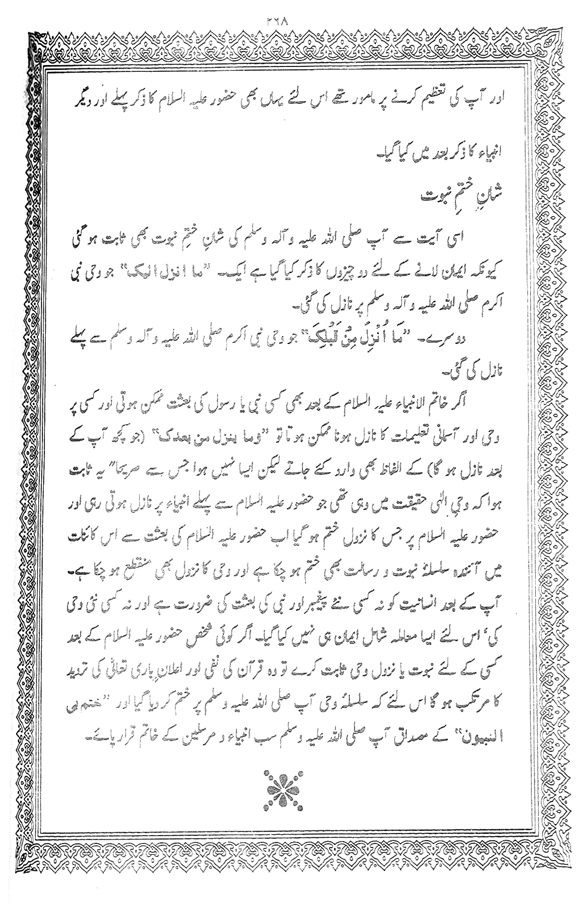 ۲۶۸
اور آپ کی تعظیم کرنے پر مامور تھے اس لئے یہاں بھی حضور علیہ السلام کا ذکر پہلے اور دیگر
انبیاء کا ذکر بعد میں کیا گیا۔
شانِ ختمِ نبوت
اسی آیت سے آپ صلی اللہ علیہ و آلہ وسلم کی شانِ ختمِ نبوت بھی ثابت ہو گئی
کیونکہ ایمان لانے کے لئے دو چیزوں کا ذکر کیا گیا ہے ایک۔ ”ما انزل الیک“ جو وحی نبی
اکرم صلی اللہ علیہ و آلہ وسلم پر نازل کی گئی۔
دوسرے۔ ”مَا اُنْزِلَ مِنْ قَبْلِکَ“ جو وحی نبی اکرم صلی اللہ علیہ و آلہ وسلم سے پہلے
نازل کی گئی۔
اگر خاتم الانبیاء علیہ السلام کے بعد بھی کسی نبی یا رسول کی بعثت ممکن ہوتی اور کسی پر
وحی اور آسمانی تعلیمات کا نازل ہونا ممکن ہوتا تو ”وما ینزل من بعدک“ (جو کچھ آپ کے
بعد نازل ہو گا) کے الفاظ بھی وارد کئے جاتے لیکن ایسا نہیں ہوا جس سے صریحا" یہ ثابت
ہوا کہ وحی الٰہی حقیقت میں وہی تھی جو حضور علیہ السلام سے پہلے انبیاء پر نازل ہوتی رہی اور
حضور علیہ السلام پر جس کا نزول ختم ہو گیا اب حضور علیہ السلام کی بعثت سے اس کائنات
میں آئندہ سلسلۂ نبوت و رسالت بھی ختم ہو چکا ہے اور وحی کا نزول بھی منقطع ہو چکا ہے۔
آپ کے بعد انسانیت کو نہ کسی نئے پیغمبر اور نبی کی بعثت کی ضرورت ہے اور نہ کسی نئی وحی
کی‘ اس لئے ایسا معاملہ شامل ایمان ہی نہیں کیا گیا۔ اگر کوئی شخص حضور علیہ السلام کے بعد
کسی کے لئے نبوت یا نزول وحی ثابت کرے تو وہ قرآن کی نفی اور اعلانِ باری تعالیٰ کی تردید
کا مرتکب ہو گا اس لئے کہ سلسلۂ وحی آپ صلی اللہ علیہ وسلم پر ختم کر دیا گیا اور ”ختم بی
النبیون“ کے مصداق آپ صلی اللہ علیہ وسلم سب انبیاء و مرسلین کے خاتم قرار پائے۔